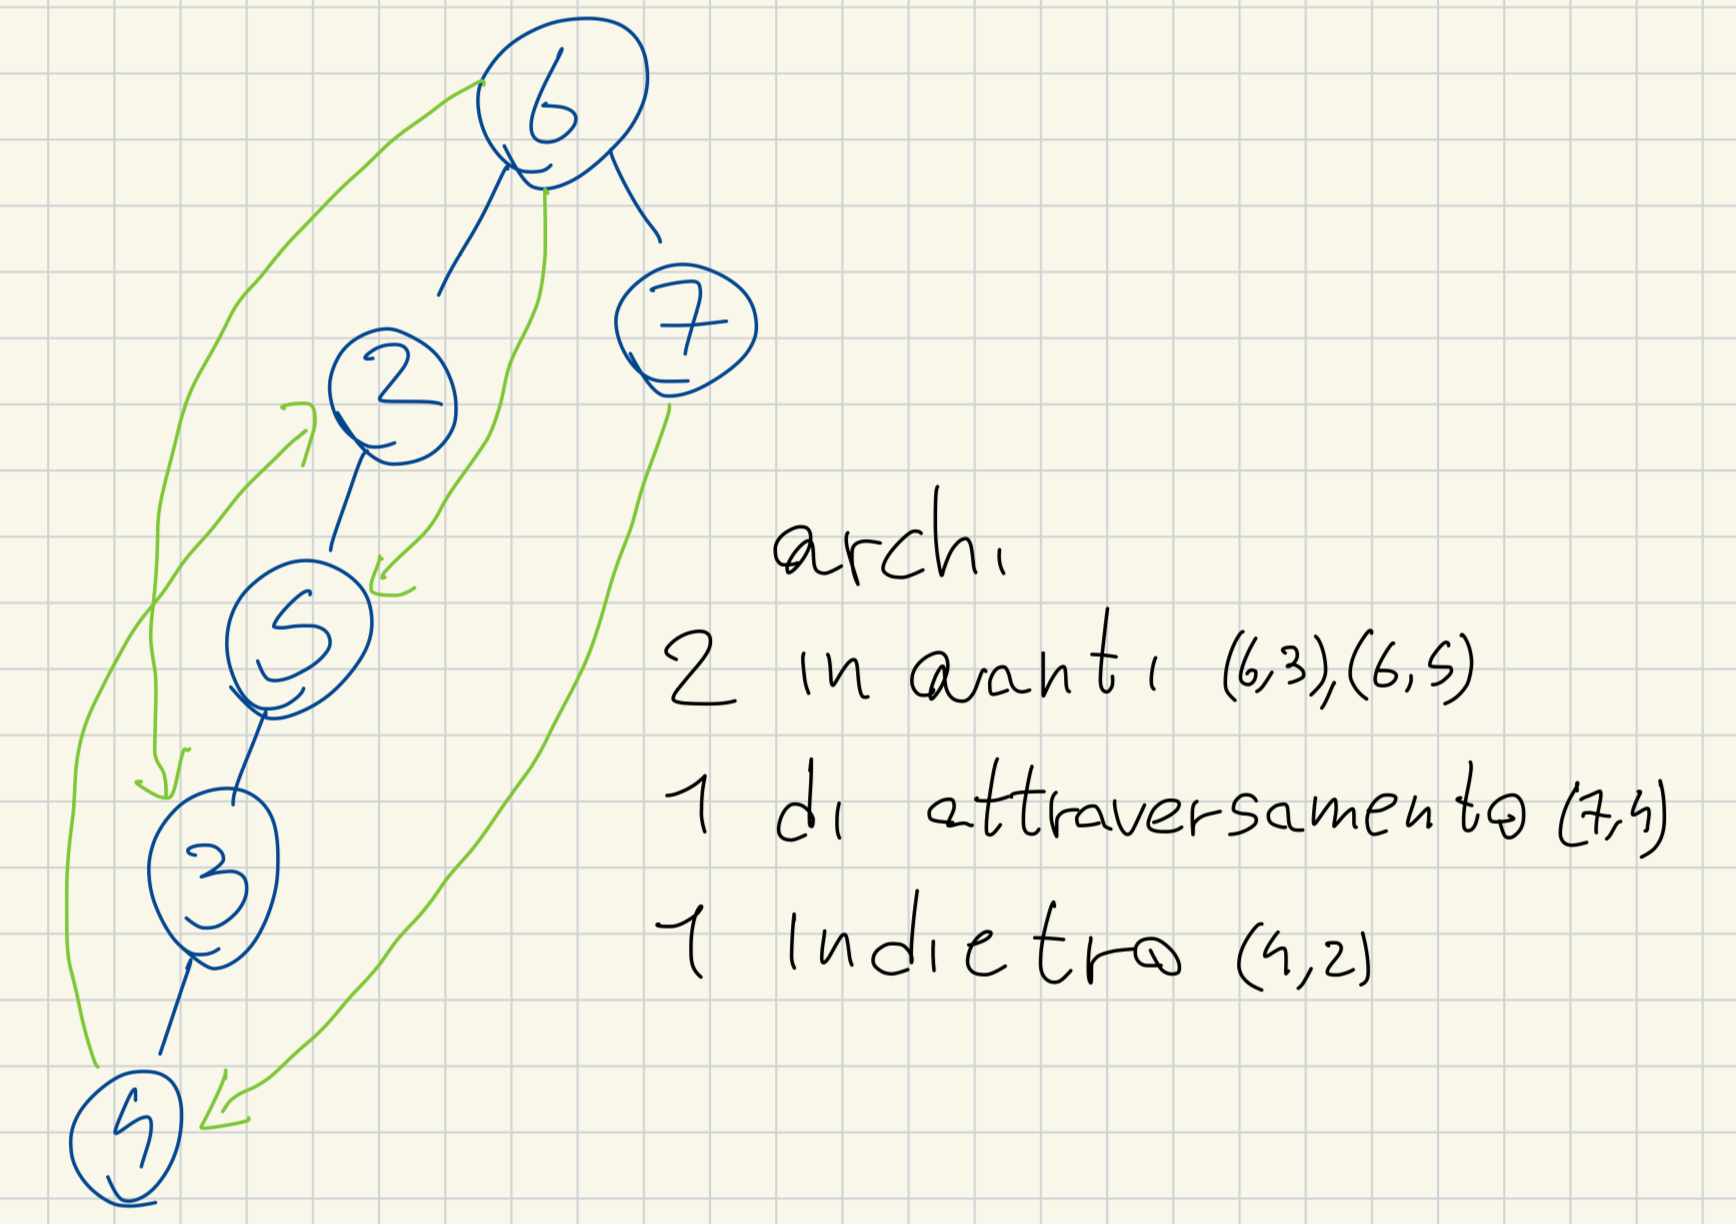 6
7
2
5
3
4
archi
2 in avanti (6,3),(6,5)
1 di attraversamento (7,4)
1 indietro (4,2)